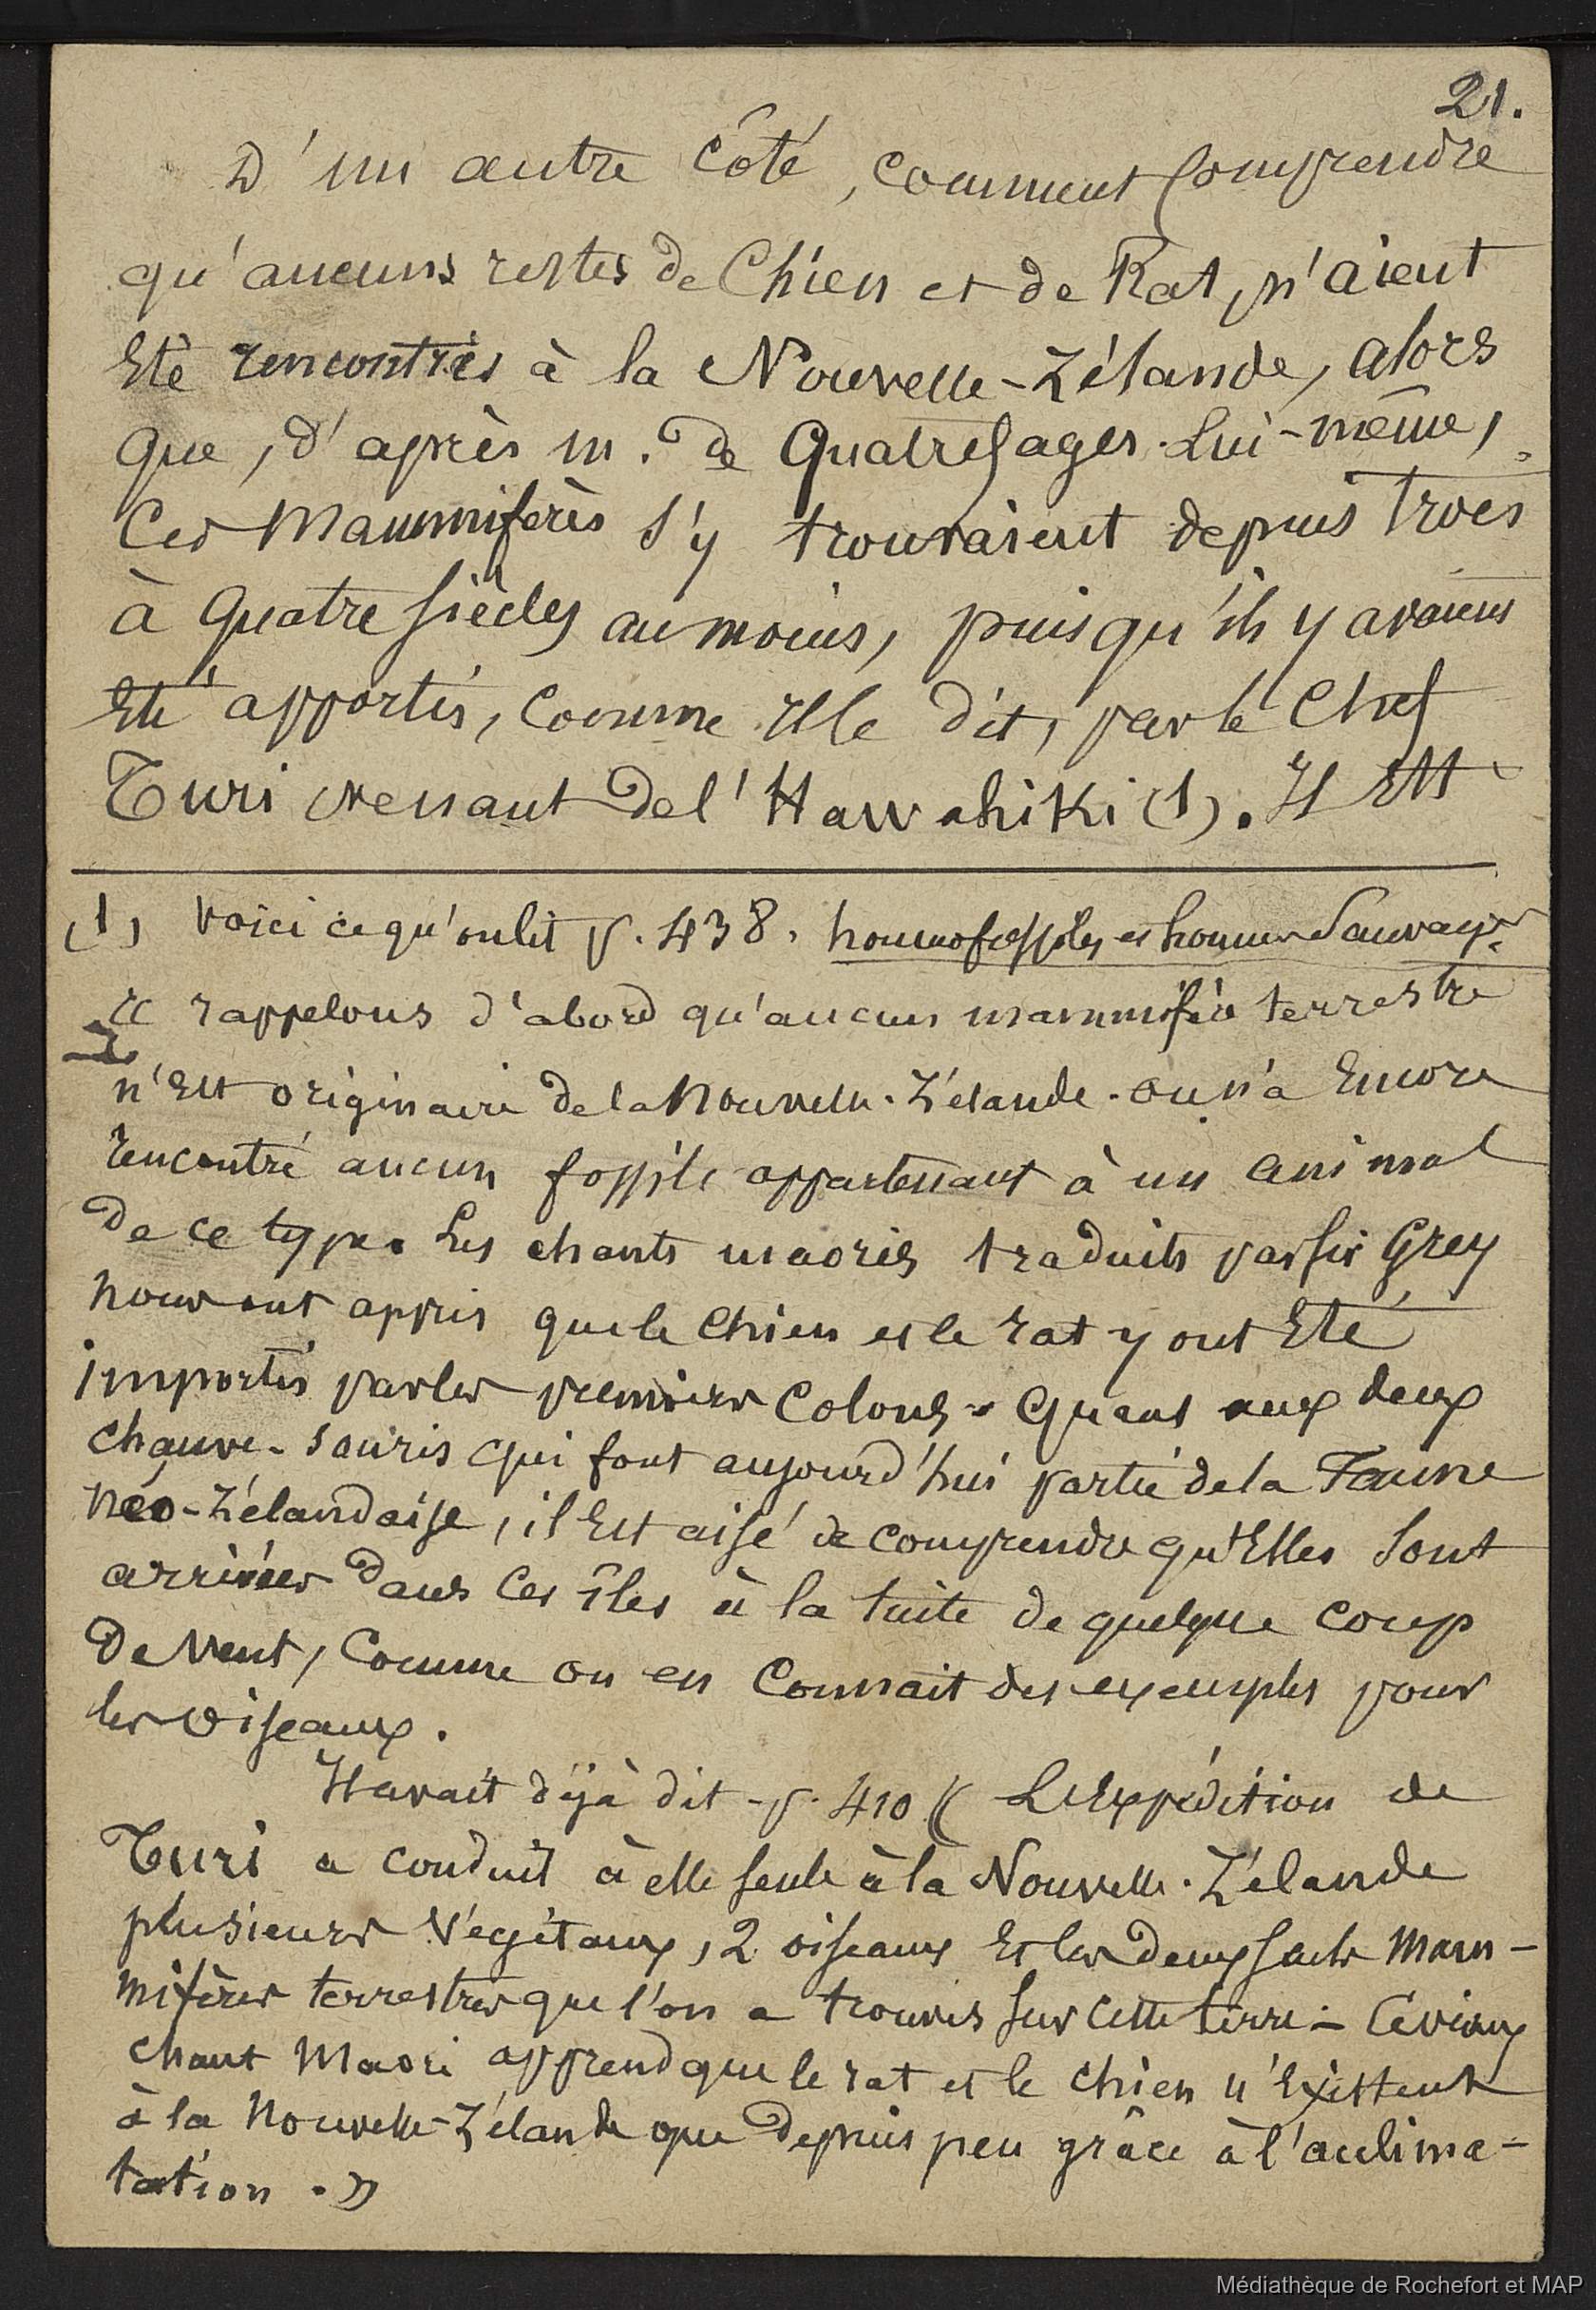 21.
D'un autre côté, comment comprendre
qu'aucuns restes de Chien et de Rat, n'aient
été rencontrés à la Nouvelle-Zélande, alors
que, d'après m. de Quatrefages lui-même,
ces Mammifères s'y trouvaient depuis trois
à quatre siècles au moins, puisqu'ils y avaient
été apportés, comme il le dit, par le Chef
Turi venant de l'Hawahiki (1). Il est
(1) Voici ce qu'on lit p. 438, hommes fossiles et hommes Sauvages.
« rappelons d'abord qu'aucun mammifère terrestre
n'est originaire de la Nouvelle-Zélande. on n'a encore
rencontré aucun fossile appartenant à un animal
de ce type. Les chants maoris traduits par sir Grey
nous ont appris que le chien et le rat y ont été
importés par les premiers Colons. Quant aux deux
chauve-souris qui font aujourd'hui partie de la Faune
néo-Zélandaise, il est aisé de comprendre qu'Elles sont
arrivées dans ces îles à la suite de quelque coup
de Vent, comme on en connait des exemples pour
les oiseaux.
Il avait déjà dit - p. 410 « L'Expédition de
Turi a conduit à elle seule à la Nouvelle-Zélande
plusieurs Végétaux, 2 oiseaux et les deux seuls Mam-
mifères terrestres que l'on a trouvés sur cette terre - Ce vieux
chant Maori apprend que le rat et le chien n'existent
à la Nouvelle-Zélande que depuis peu grâce à l'aclima-
tation. »
Médiathèque de Rochefort et MAP